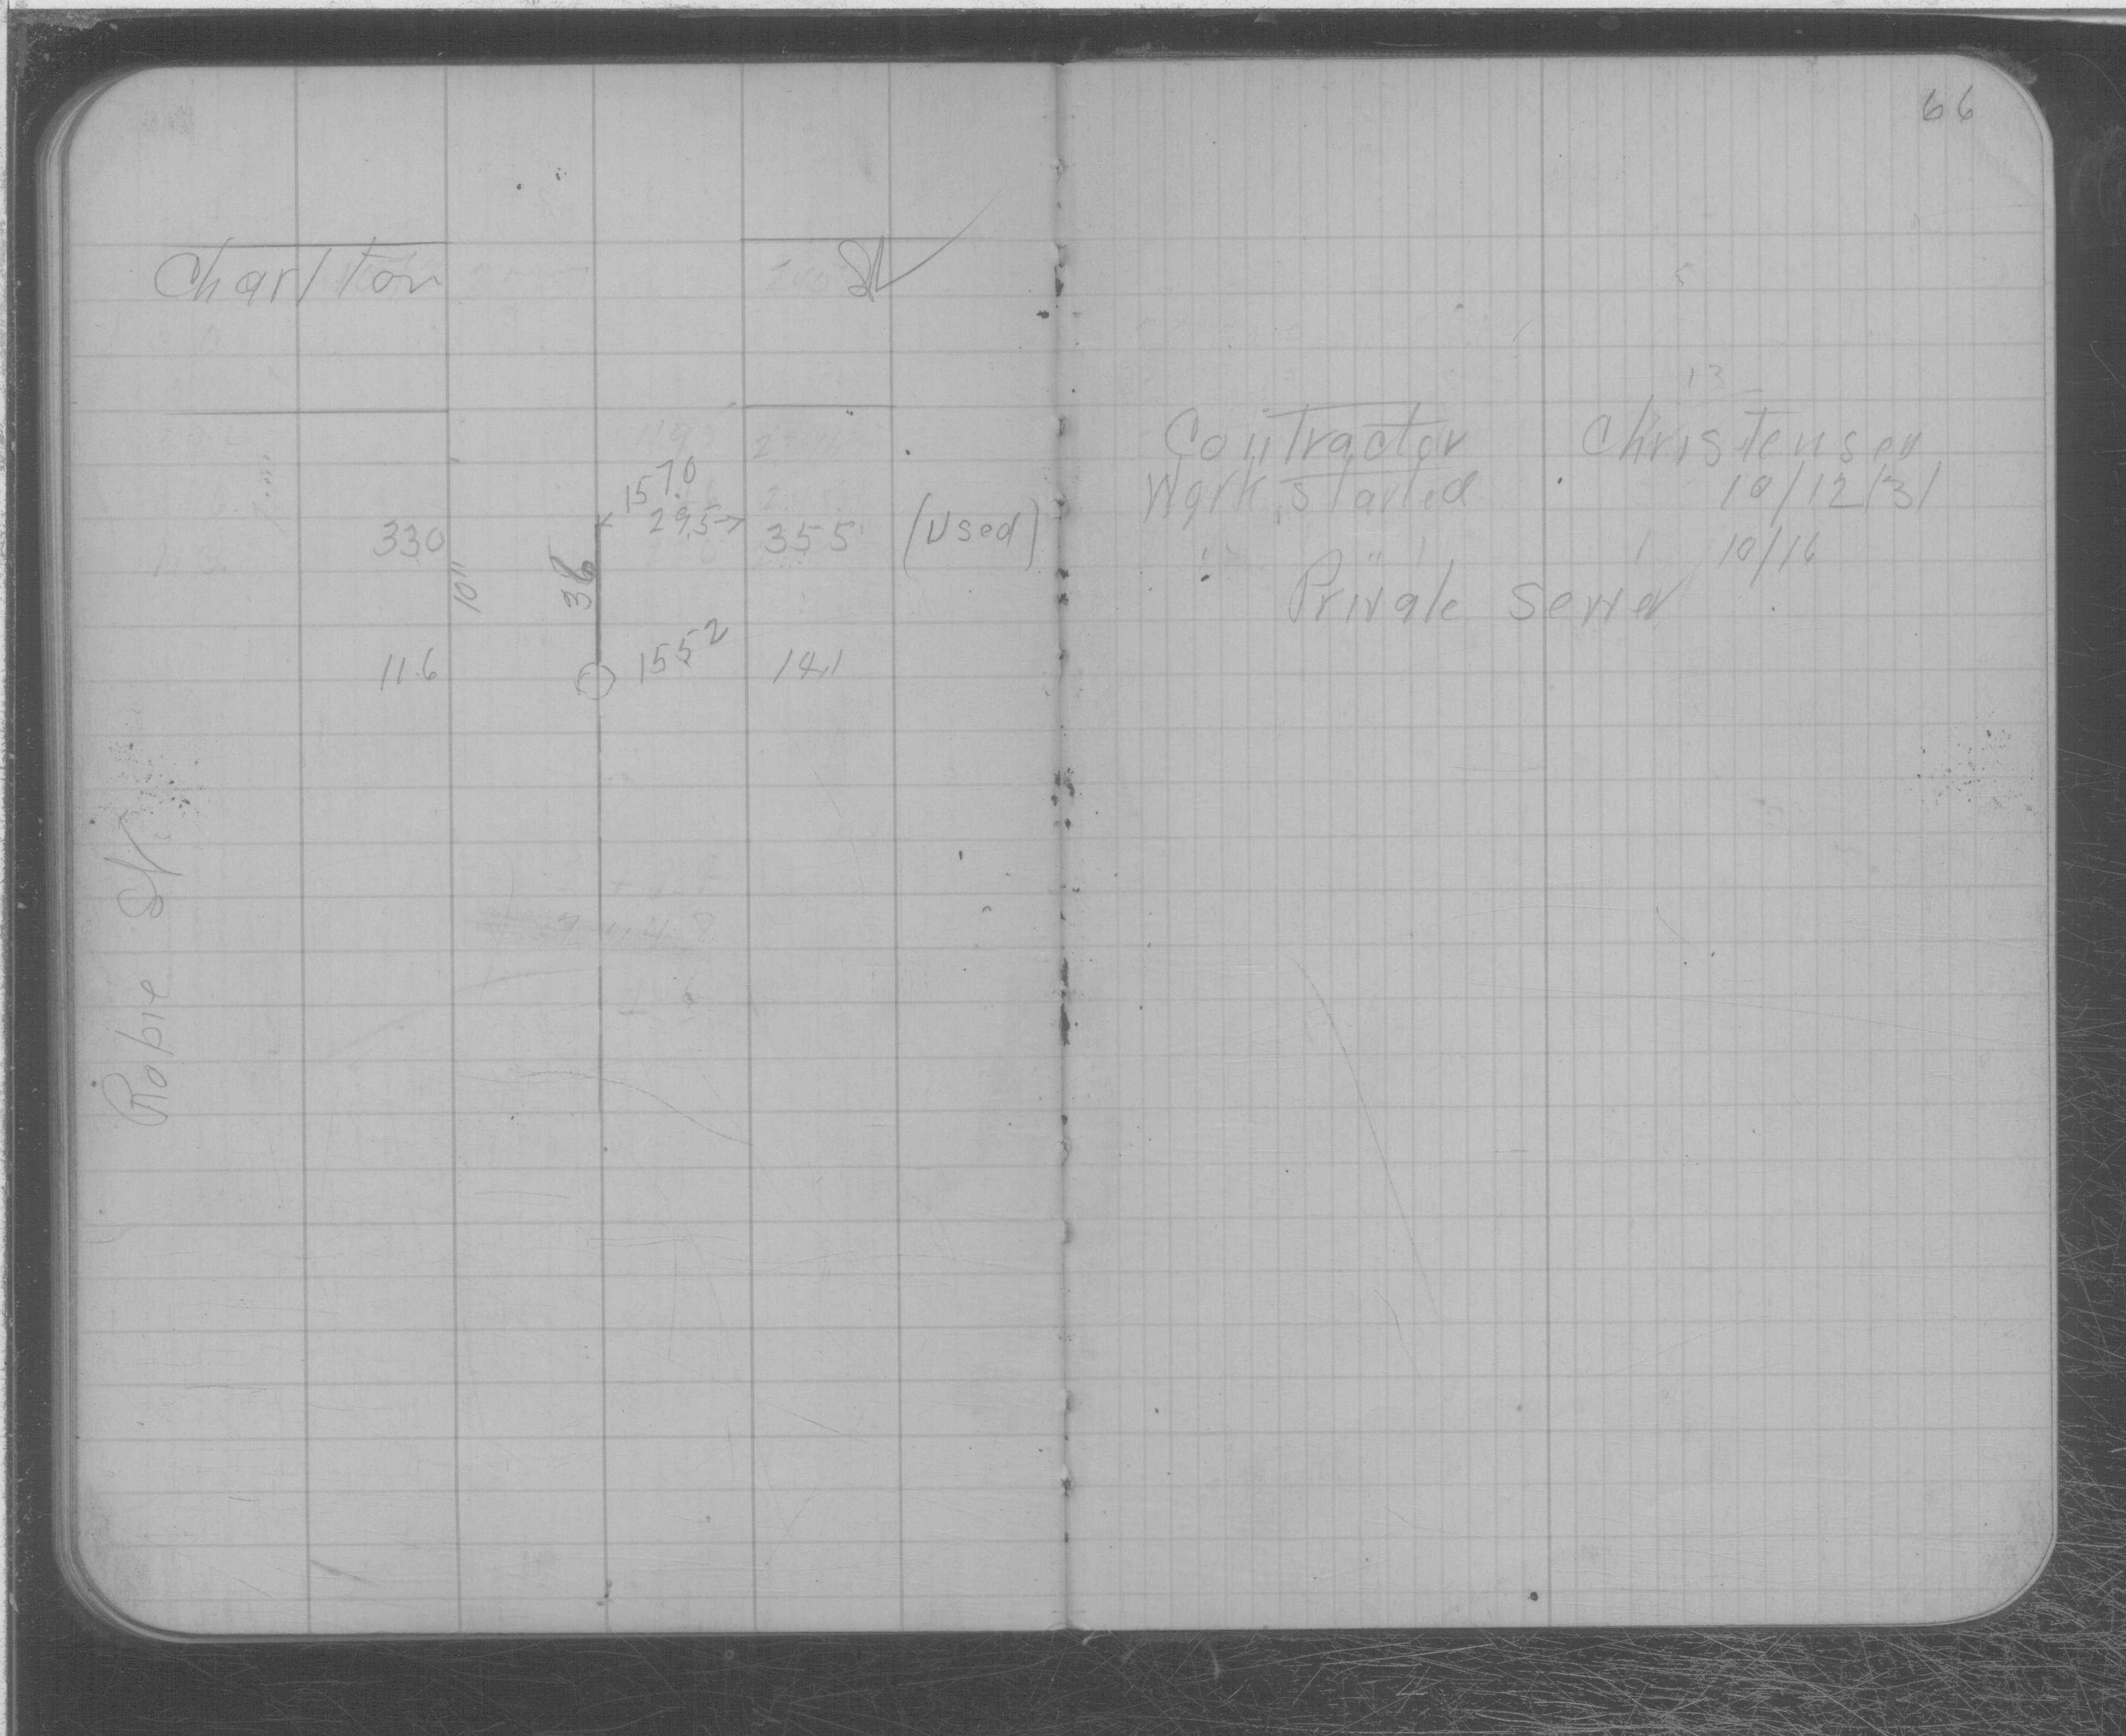 66
Charlton St
157.0
29.5
330 355 (Used)
10"
38
116 155² 141
Robie St.
Contractor Christensen
Work started 10/12/31
" " " 10/16
Private Sewer